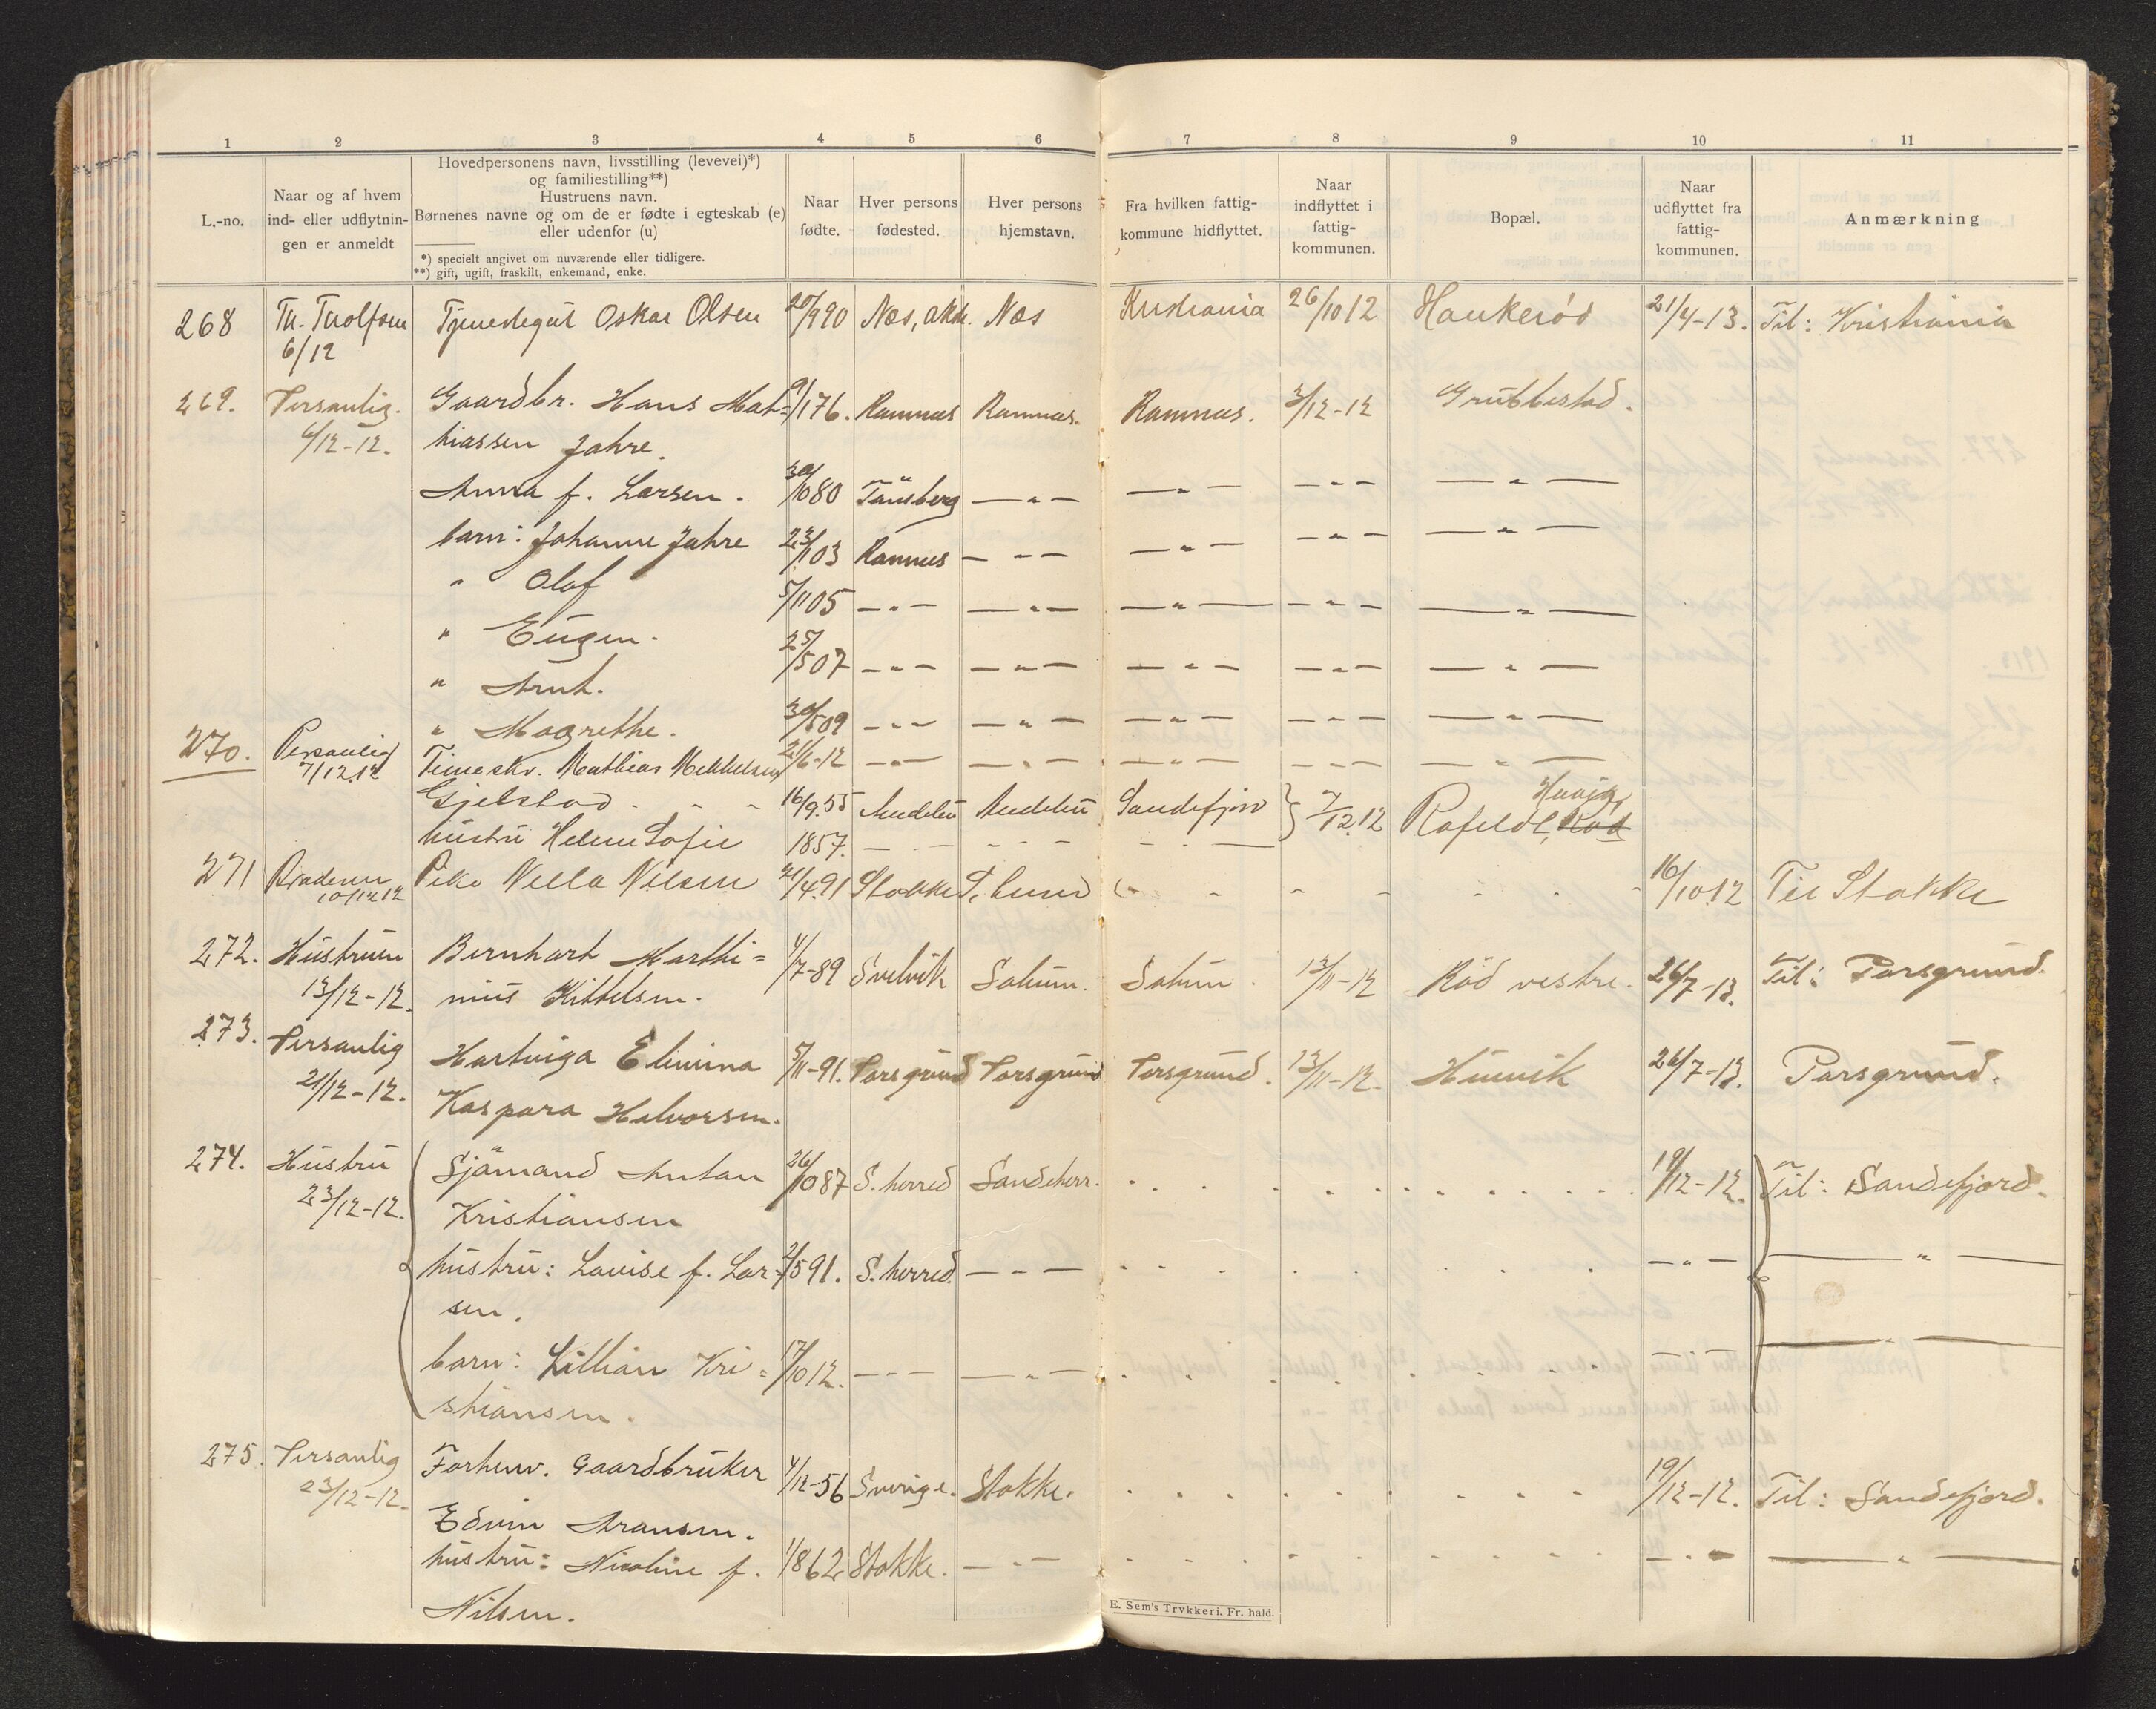 1 2 3 4 5 6 7 8 9 10 11
L.-no.
Naar og af hvem
ind- eller udflytnin-
gen er anmeldt
Hovedpersonens navn, livsstilling (levevei)*)
og familiestilling**)
Hustruens navn.
Børnenes navne og om de er fødte i egteskab (e)
eller udenfor (u)
*) specielt angivet om nuværende eller tidligere.
**) gift, ugift, fraskilt, enkemand, enke.
Naar
fødte.
Hver persons
fødested.
Hver persons
hjemstavn.
Fra hvilken fattig-
kommune hidflyttet.
Naar
indflyttet i
fattig-
kommunen.
Bopæl.
Naar
udflyttet fra
fattig-
kommunen.
Anmærkning
268 Th. Tholfsen Tjenestegut Oskar Olsen 20/9 90 Nes, Aker. Nes Kristiania 26/10 12 Haukerød 21/4-13. Til: Kristiania
6/12
269. Personlig. Gaardbr. Hans Mat= 9/1 76. Ramnæs Ramnæs. Ramnæs. 3/12-12 Grubbestad.
6/12-12. hiassen Jahre.
Anna f. Larsen. 30/10 80 Tønsberg — " — — " — — " — — " —
barn: Johanne Jahre 23/1 03 Ramnes — " — — " — — " — — " —
" Olaf 5/11 05 — " — — " — — " — — " — — " —
" Eugen. 25/5 07 — " — — " — — " — — " — — " —
" Arnt. 30/5 09 — " — — " — — " — — " — — " —
" Magrethe. 21/6-12 — " — — " — — " — — " — — " —
270. Personlig Tømeskr. Mathias Mikkelsen
7/12.12 Gjelstad - - - 16/9.55 Andebu Andebu Sandefjord } 7/12.12 Rafeldt, Rød Huvig
hustru Helene Sofie 1857. — - — - - — - —
271 Broderen Pike Nella Nilsen 21/4.91 Stokke S. herred - - - - - 16/10.12 Til Stokke
10/12 12
272. Hustruen Bernhart Marthi= 4/7-89 Svelvik Solum. Solum. 13/11-12 Röd vestre. 26/7-13. Til: Porsgrund.
13/12-12. nius Kittelsen.
273. Personlig Hartviga Elimina 5/11-91. Porsgrund Porsgrund Porsgrund. 13/11-12. Hunvik 26/7-13. Porsgrund.
21/12-12. Kaspara Halvorsen.
274. Hustru Sjömand Anton 26/10 87 S. herred Sandeherr. 19/12-12. Til: Sandefjord.
23/12-12. Kristiansen
hustru: Lovise f. Lar= 2/5 91. S. herred. — " — — " — — " —
sen.
barn: Lillian Kri= 17/10 12. — " — — " — — " — — " —
stiansen.
275. Personlig Forhenv. Gaardbruker 4/12-56 Sverige. Stokke. 19/12-12. Til: Sandefjord.
23/12-12. Edvin Aransen.
hustru: Nicoline f. 1/8 62 Stokke. — " — — " — — " —
Nilsen.
E. Sem's Trykkeri. Fr. hald.